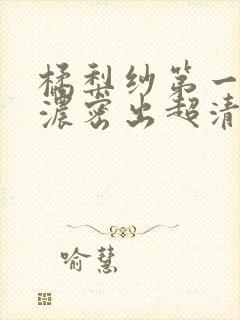 橘梨纱第一
浓密出超清
喻慧